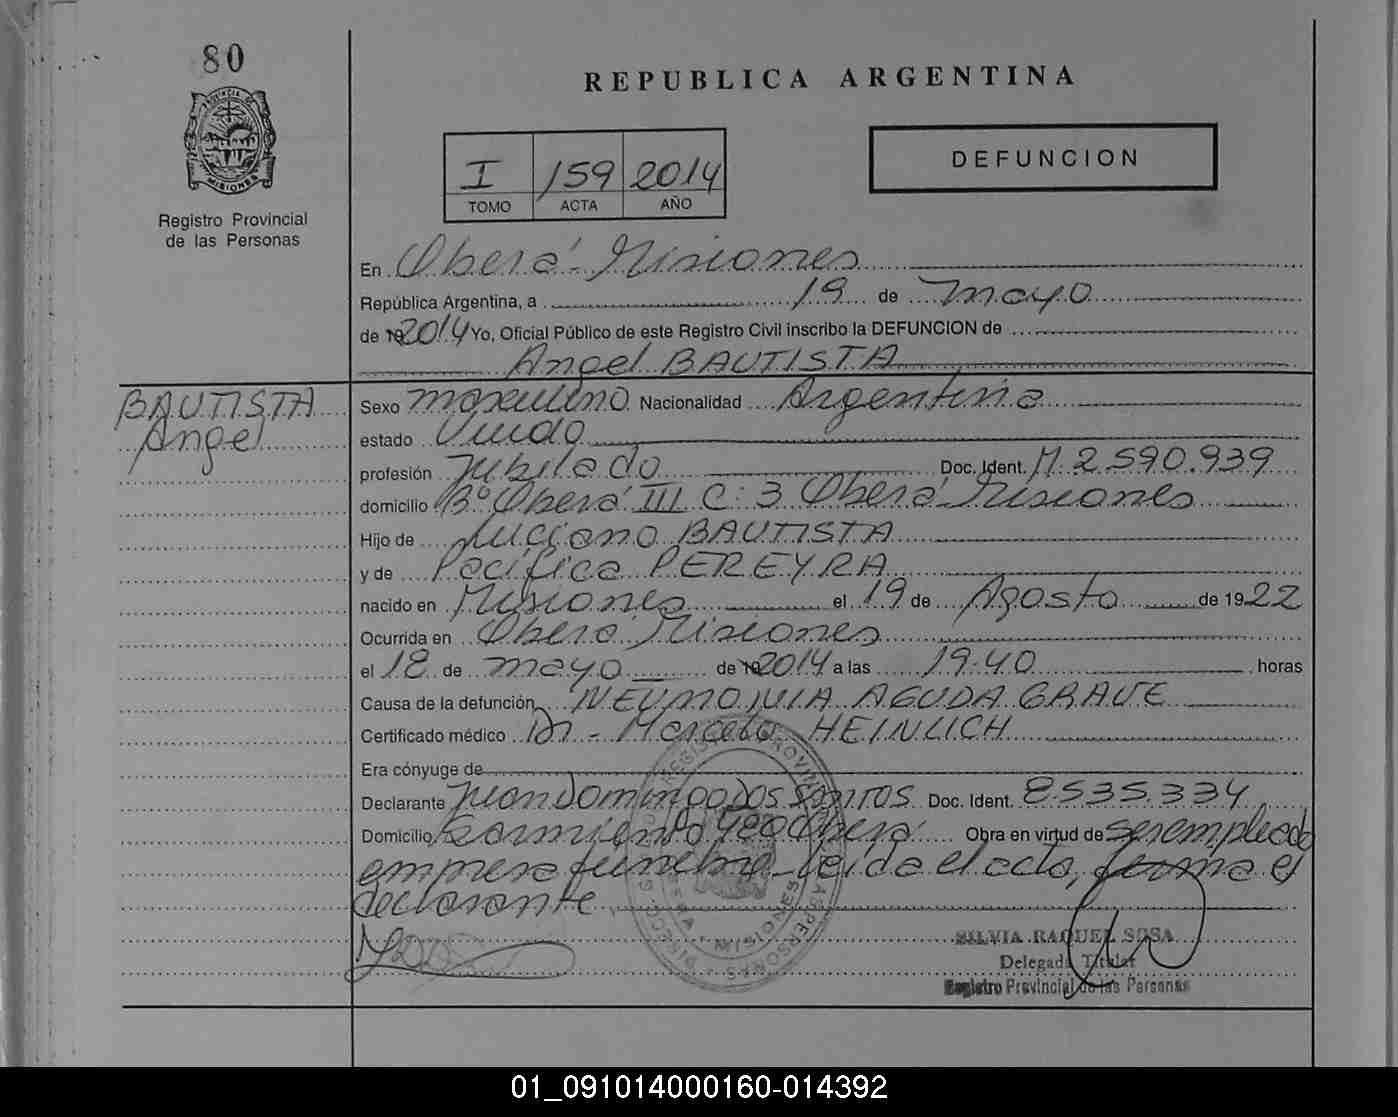 80
PROVINCIA DE
MISIONES
Registro Provincial
de las Personas
REPUBLICA ARGENTINA
I 159 2014
TOMO ACTA AÑO
DEFUNCION
En Oberá - Misiones
República Argentina, a 19 de mayo
de 2014 Yo, Oficial Público de este Registro Civil inscribo la DEFUNCION de
Angel BAUTISTA
BAUTISTA
Angel
Sexo masculino Nacionalidad Argentina
estado Viudo
profesión Jubilado Doc. Ident. M 2.590.939
domicilio B° Oberá III C: 3 Oberá Misiones
Hijo de Luciano BAUTISTA
y de Pacífica PEREYRA
nacido en Misiones el 19 de Agosto de 1922
Ocurrida en Oberá Misiones
el 18 de mayo de 2014 a las 19:40 horas
Causa de la defunción NEUMONIA AGUDA GRAVE
Certificado médico Dr - Marcelo HEINLICH
Era cónyuge de
Declarante Juan Domingo DOS SANTOS Doc. Ident. 8535.334
Domicilio Sarmiento Oberá Obra en virtud de ser empleado
empresa fúnebre - leída el acta, firma el
declarante
SILVIA RAQUEL SOSA
Delegada Titular
Registro Provincial de las Personas
01_091014000160-014392